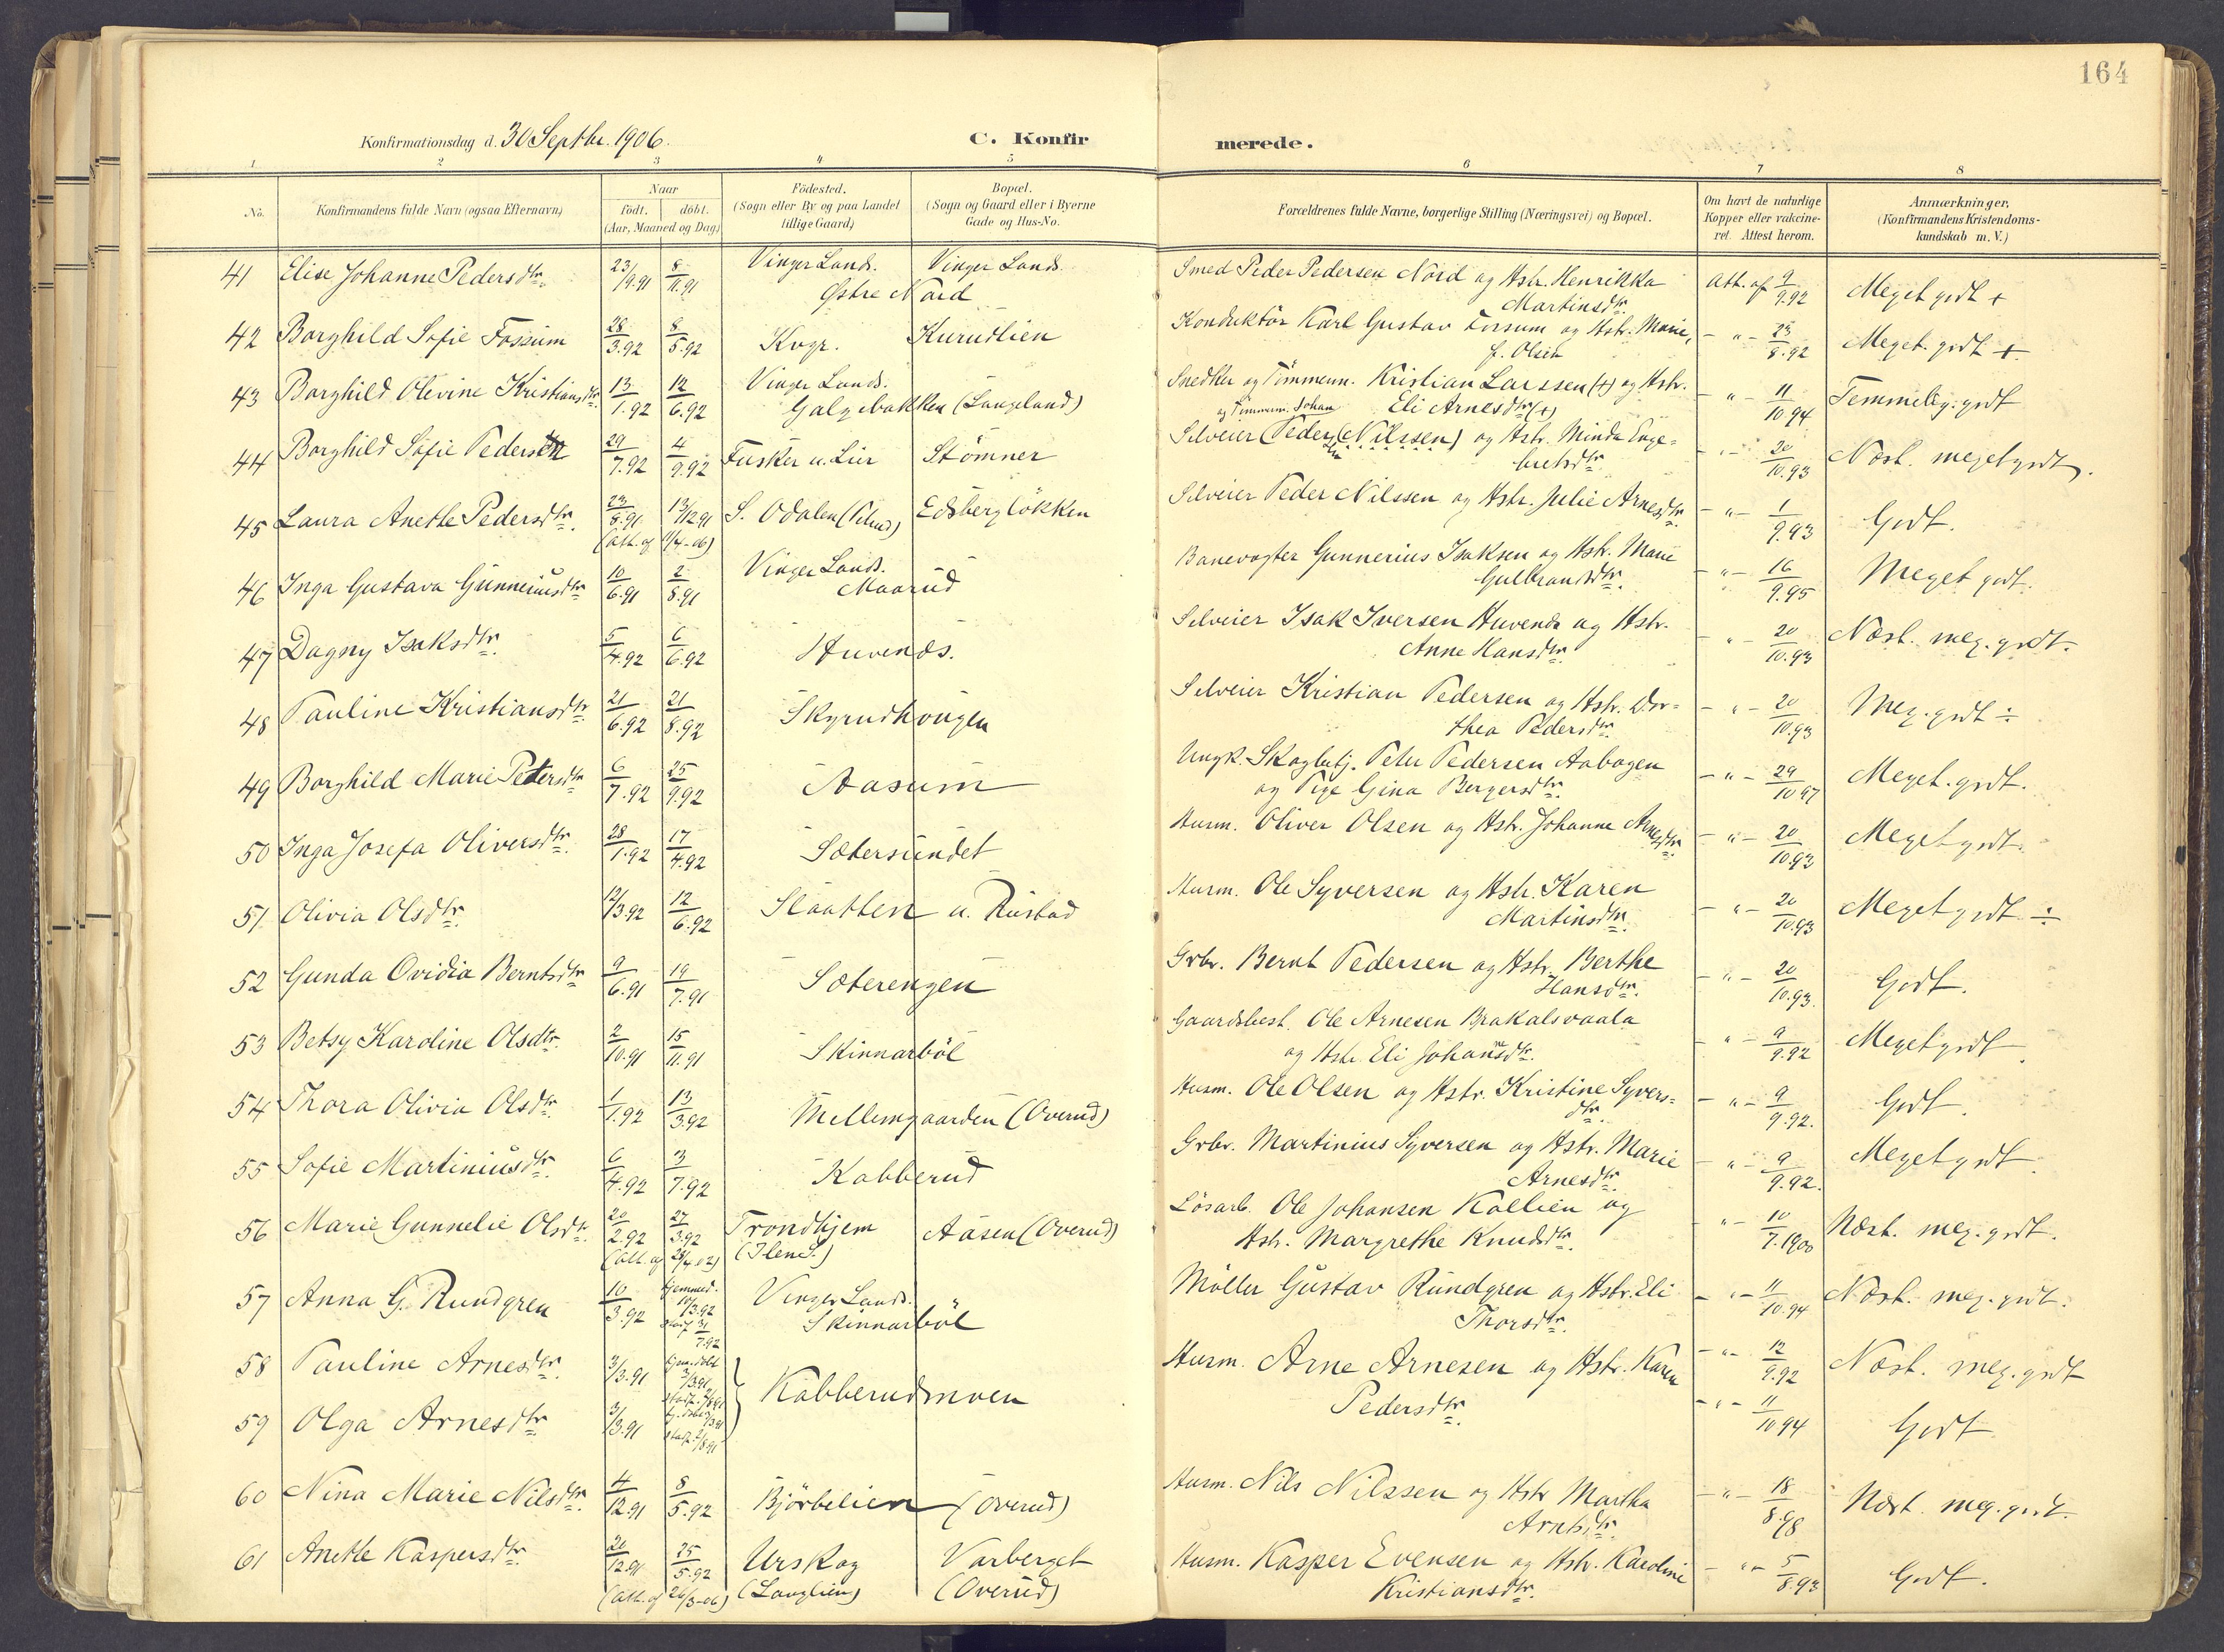 164
Konfirmationsdag d. 30 Septbr. 1906.
C. Konfirmerede.
1 2 3 4 5 6 7 8
No.
Konfirmandens fulde Navn (ogsaa Efternavn)
Naar
födt. döbt.
(Aar, Maaned og Dag)
Födested.
(Sogn eller By og paa Landet
tillige Gaard)
Bopæl.
(Sogn og Gaard eller i Byerne
Gade og Hus-No.
Forældrenes fulde Navne, borgerlige Stilling (Næringsvei) og Bopæl.
Om havt de naturlige
Kopper eller vakcine-
ret. Attest herom.
Anmærkninger.
(Konfirmandens Kristendoms-
kundskab m. V.)
41 Elise Johanne Pedersdtr. 23/9.91 8/11.91 Vinger Lands. Vinger Lands. Smed Peder Pedersen Nord og Hstr. Henrikka Att. af 9/9.92 Meget godt +
Østre Nord Martinsdtr.
42 Borghild Sofie Fossum 28/3.92 8/5.92 Kvgr. Kurudlien Konduktör Karl Gustav Fossum og Hstr. Marie, - " - 23/8.92 Meget godt +
f. Olsen
43 Borghild Olevine Kristiansdtr. 13/1.92 12/6.92 Vinger Lands. Snedker og Tömmerm. Kristian Larssen (+) og Hstr. - " - 11/10.94 Temmelig godt
Galgebakken (Langeland) Eli Arnesdtr. (+)
og Tömmerm. Johan
44 Borghild Sofie Pedersen 29/7.92 4/9.92 Fusker u. Lier Stömner Selveier (Peder Nilssen) og Hstr. Minda Enge- - " - 20/10.93 Næst. meget godt.
bretsdtr.
45 Laura Anette Pedersdtr. 23/8.91 13/12.91 S. Odalen Edsberglökken Selveier Peder Nilssen og Hstr. Julie Arnesdtr. - " - 1/9.93 Godt.
(Att. af 11/4-06)
46 Inga Gustava Gunneriusdtr. 10/6.91 2/8.91 Vinger Lands. Banevogter Gunnerius Isaksen og Hstr. Marie - " - 16/9.95 Meget godt.
Maarud Gulbrandsdtr.
47 Dagny Isaksdtr. 5/4.92 6/6.92 Huvenæs. Selveier Isak Iversen Huvenæs og Hstr. - " - 20/10.93 Næst. meg. godt.
Anne Hansdtr.
48 Pauline Kristiansdtr. 21/6.92 21/8.92 Skyrudhougen Selveier Kristian Pedersen og Hstr. Dor- - " - 20/10.93 Meg. godt ÷
thea Pedersdtr.
49 Borghild Marie Petersdtr. 6/7.92 25/9.92 Aasum Ungk. Skogbetj. Peter Pedersen Aabogen - " - 29/10 97 Meget godt.
og Pige Gina Bergersdtr.
50 Inga Josefa Oliversdtr. 28/1.92 17/4.92 Sætersundet Husm. Oliver Olsen og Hstr. Johanne Arnesdtr. - " - 20/10.93 Meget godt.
51 Olivia Olsdtr. 12/3.92 12/6.92 Slaatten u. Rustad Husm. Ole Syversen og Hstr. Karen - " - 20/10.93 Meget godt ÷
Martinsdtr.
52 Gunda Ovidia Berntsdtr. 9/6.91 19/7.91 Sæterengen Grbr. Bernt Pedersen og Hstr. Berthe - " - 20/10.93. Godt.
Hansdtr.
53 Betsy Karoline Olsdtr. 2/10.91 15/11.91 Skinnarböl Gaardsbest. Ole Arnesen Brakalsvaala - " - 9/9.92 Meget godt
og Hstr. Eli Johansdtr.
54 Thora Olivia Olsdtr. 1/1.92 13/3.92 Mellemgaarden (Overud) Husm. Ole Olsen og Hstr. Kristine Syvers- - " - 9/9.92. Godt.
dtr.
55 Sofie Martiniusdtr. 6/4.92 3/7.92 Kabberud Grbr. Martinius Syversen og Hstr. Marie - " - 9/9.92. Meget godt.
Arnesdtr.
56 Marie Gunnelie Olsdtr. 20/2.92 27/3.92 Trondhjem Aasen (Overud) Lösarb. Ole Johansen Kollien og - " - 10/7.1900 Næst. meg. godt.
(Att. af 28/4.02) (Ilens.) Hstr. Margrethe Knudsdtr.
57 Anna G. Rundgren 10/3.92 hjemmed. 10/3.92 stadf. 31/7.92 Vinger Lands. " Möller Gustav Rundgren og Hstr. Eli - " - 11/10.94 Næst. meg. godt.
Skinnarböl Thorsdtr.
58 Pauline Arnesdtr. 3/3.91 hjem.döbt 3/3.91 Kabberudmoen Husm. Arne Arnesen og Hstr. Karen - " - 12/9.92 Næst. meg. godt
Pedersdtr.
59 Olga Arnesdtr. 3/3.91 - " - 11/10 94 Godt
60 Nina Marie Nilsdtr. 4/12.91 8/5.92 Björbelien (Overud) Husm. Nils Nilssen og Hstr. Martha - " - 18/8.98 Næst. meg. godt.
Arntsdtr.
61 Anette Kaspersdtr. 20/12.91 25/5.92 Urskog Varberget Husm. Kasper Evensen og Hstr. Karoline - " - 5/8.93 Godt.
(Att. af 26/3-06) (Langlien) (Overud) Kristiansdtr.